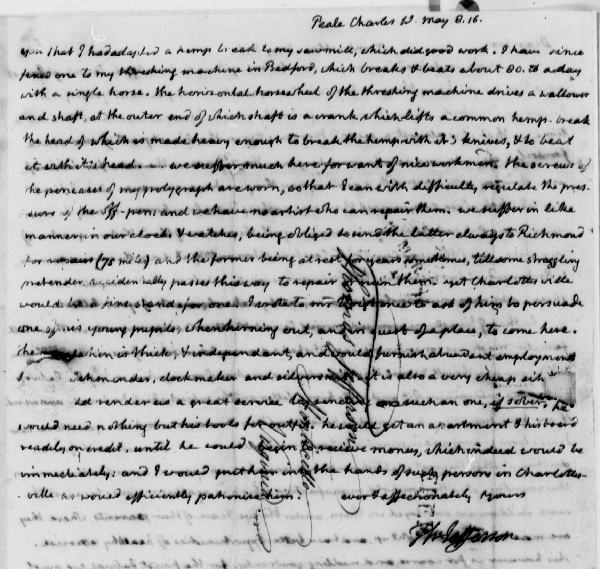 Peale Charles W. May 8. 16.
you that I had adapted a hemp break to my sawmill, which did good work. I have since
fixed one to my threshing machine in Bedford, which breaks & beats about 80. lb a day
with a single horse. the horizontal horsewheel of the threshing machine drives a wallower
and shaft, at the outer end of which shaft is a crank which lifts a common hemp-break
the head of which is made heavy enough to break the hemp with it's knives, & to beat
it with it's head. we suffer much here for want of nice workmen. the screws of
the pencases of my polygraph are worn, so that I can with difficulty, regulate the pres-
sure of the off-pen, and we have no artist who can repair them. we suffer in like
manner in our clocks & watches, being obliged to send the latter always to Richmond
for repairs (75 miles) and the former being at rest for years sometimes, till some straggling
pretender accidentally passes this way to repair or ruin them. yet Charlottesville
would be a fine stand for one. I wrote to mr to ask of him to persuade
one of his young pupils, when turning out, and in quest of a place, to come here.
the is thick, & independant, and would furnish abundant employment
watchmender, clockmaker and silversmith. it is also a very cheap
render us a great service by sending us such an one, if sober, he
would need nothing but his tools for outfit. he could get an apartment & his board
readily on credit, until he could begin to recieve money, which indeed would be
immediately: and I would put him into the hands of such persons in Charlottes-
ville as would efficiently patronise him. ever & affectionately yours
Th: Jefferson
Thomas Jefferson
Monticello
Virginia